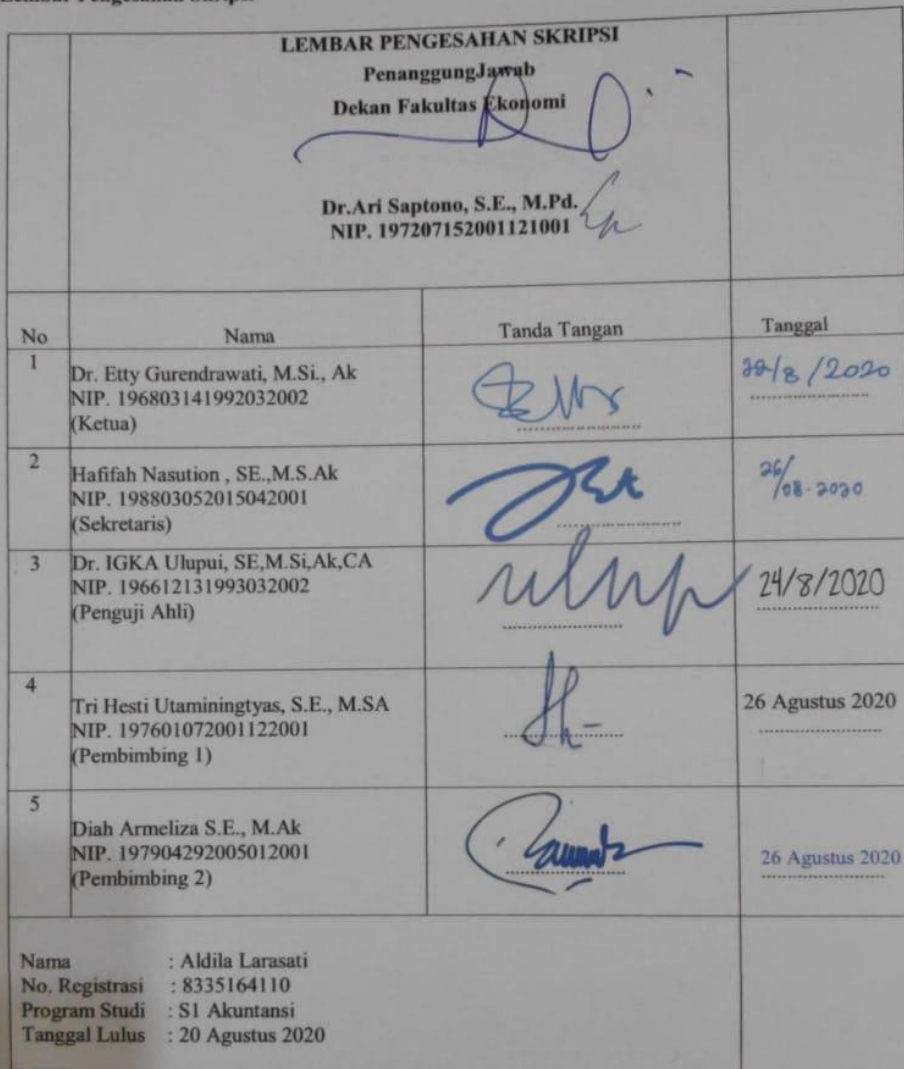 LEMBAR PENGESAHAN SKRIPSI
PenanggungJawab
Dekan Fakultas Ekonomi
Dr.Ari Saptono, S.E., M.Pd.
NIP. 197207152001121001
No
Nama
Tanda Tangan
Tanggal
1
Dr. Etty Gurendrawati, M.Si., Ak
NIP. 196803141992032002
(Ketua)
/8/2020
2
Hafifah Nasution , SE.,M.S.Ak
NIP. 198803052015042001
(Sekretaris)
26/08-2020
3
Dr. IGKA Ulupui, SE,M.Si,Ak,CA
NIP. 196612131993032002
(Penguji Ahli)
24/8/2020
4
Tri Hesti Utaminingtyas, S.E., M.SA
NIP. 197601072001122001
(Pembimbing 1)
26 Agustus 2020
5
Diah Armeliza S.E., M.Ak
NIP. 197904292005012001
(Pembimbing 2)
26 Agustus 2020
Nama : Aldila Larasati
No. Registrasi : 8335164110
Program Studi : S1 Akuntansi
Tanggal Lulus : 20 Agustus 2020